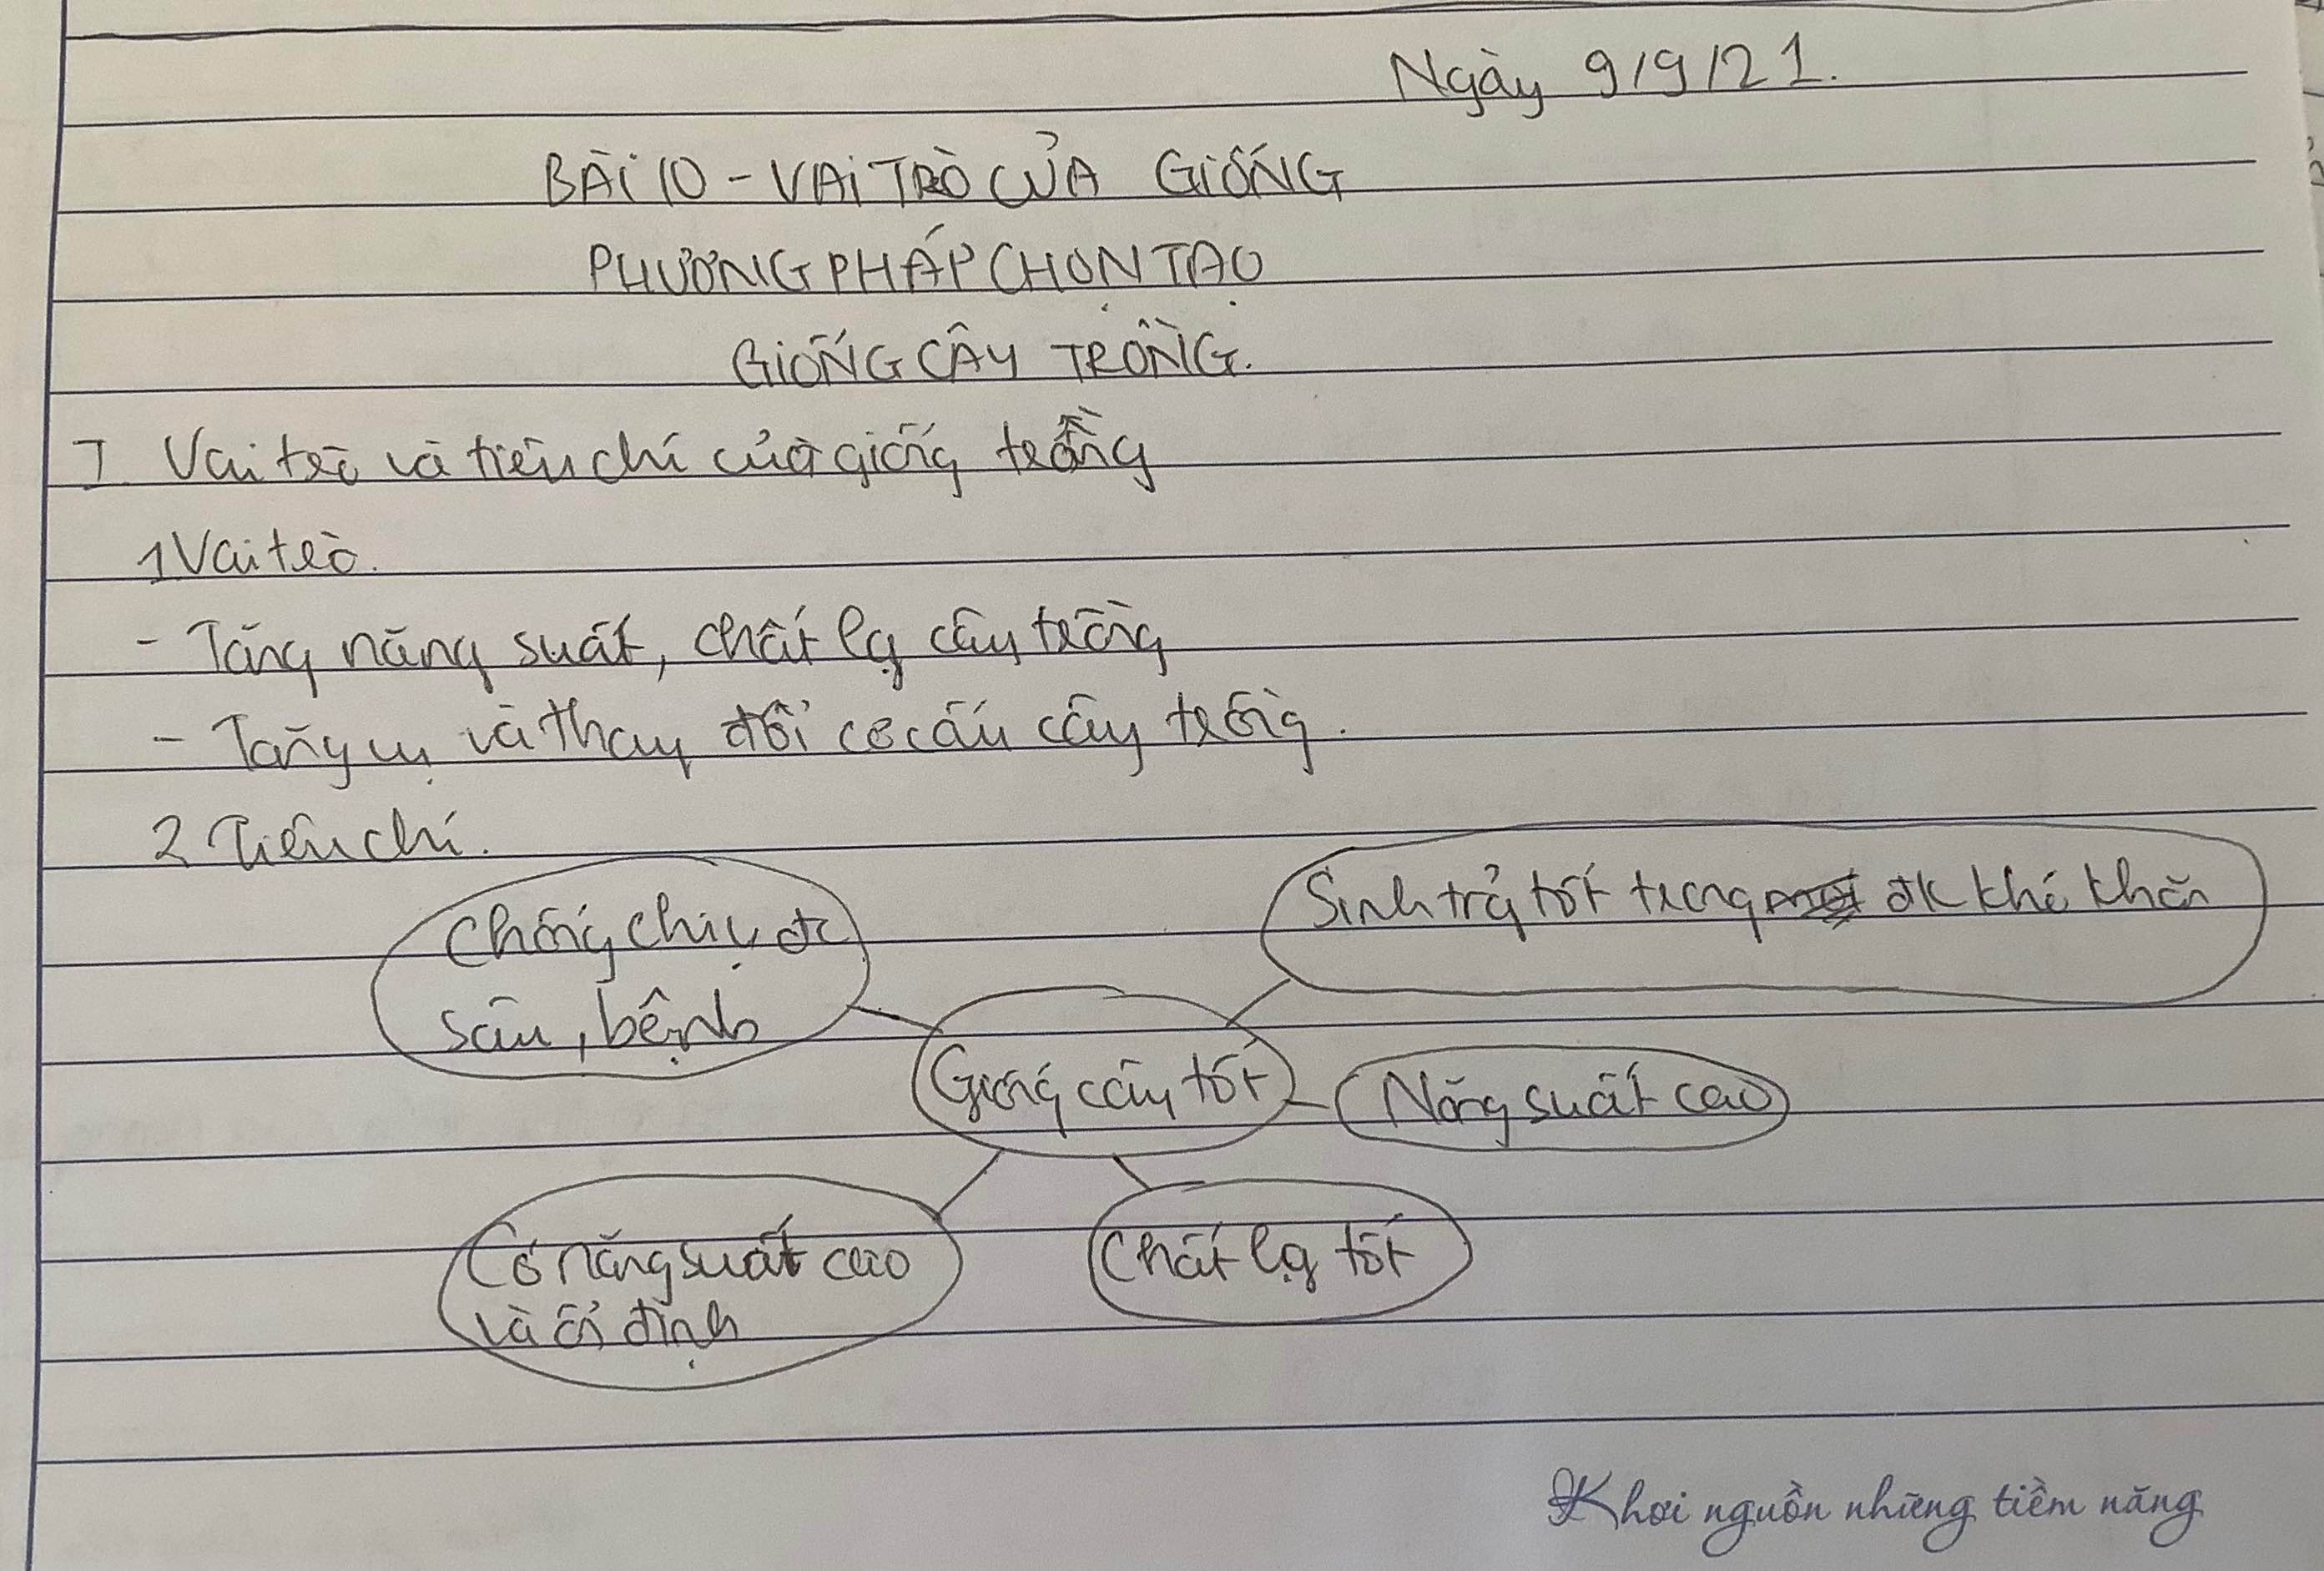 Ngày 9/9/21.
BÀI 10 - VAI TRÒ CỦA GIỐNG
PHƯƠNG PHÁP CHỌN TẠO
GIỐNG CÂY TRỒNG.
I. Vai trò và tiêu chí của giống trồng
1 Vai trò.
- Tăng năng suất, chất lg cây trồng
- Tăng vụ và thay đổi cơ cấu cây trồng.
2 Tiêu chí.
Chống chịu đc
sâu, bệnh
Sinh trg tốt trong đk khó khăn
Giống cây tốt
Năng suất cao
Có năng suất cao
và ổn định
Chất lg tốt
Khơi nguồn những tiềm năng